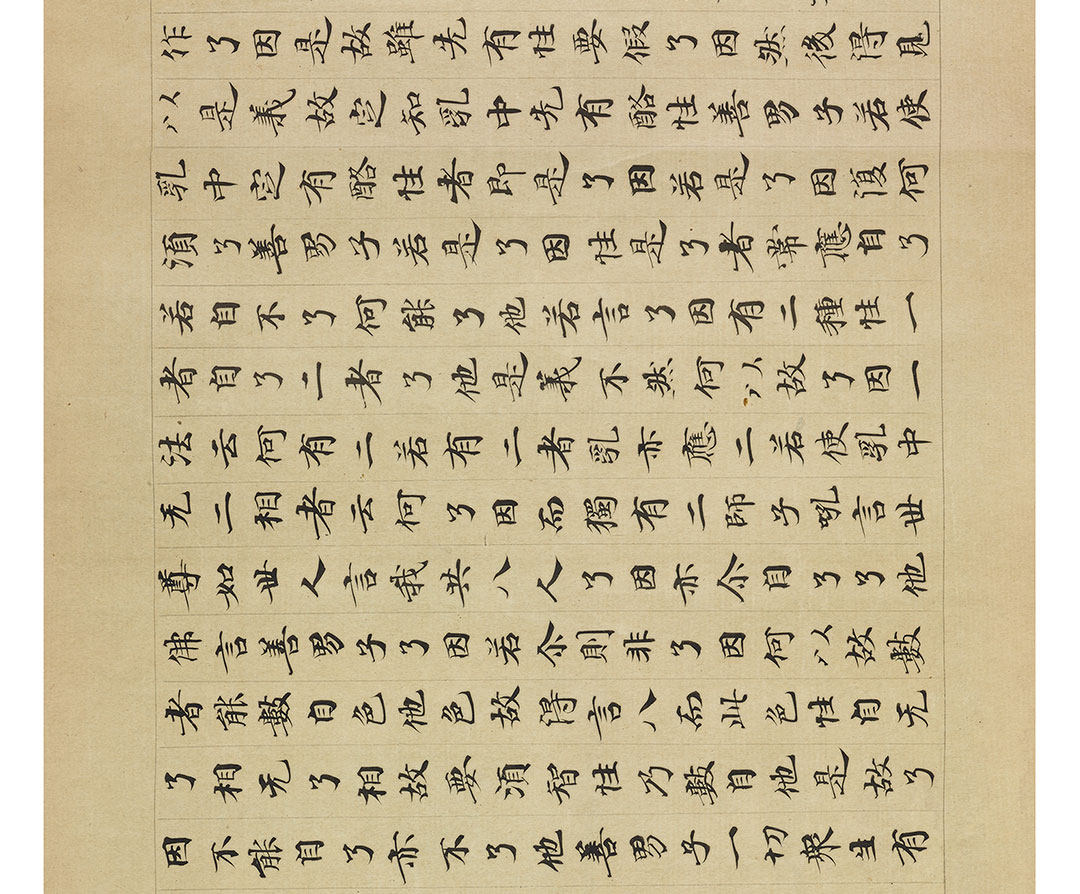 作了因是故雖先有性要假了因然後得見
以是義故定知乳中先有酪性善男子若使
乳中定有酪性者即是了因若是了因復何
須了善男子若是了因性是了者常應自了
若自不了何能了他若言了因有二種性一
者自了二者了他是義不然何以故了因一
法云何有二若有二者乳亦應二若使乳中
无二相者云何了因而獨有二師子吼言世
尊如世人言我共八人了因亦尒自了了他
佛言善男子了因若尒則非了因何以故數
者能數自色他色故得言八而此色性自无
了相无了相故要須智性乃數自他是故了
因不能自了亦不了他善男子一切衆生有